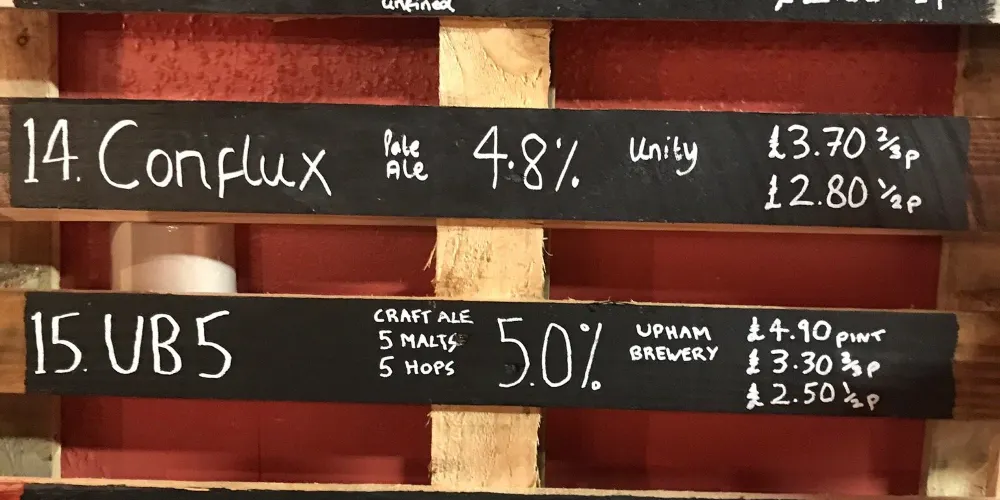 unfined
14. Conflux Pale Ale 4.8% Unity £3.70 2/3p
£2.80 1/2p
15. UB5 CRAFT ALE 5 MALTS 5 HOPS 5.0% UPHAM BREWERY £4.90 PINT
£3.30 2/3p
£2.50 1/2p